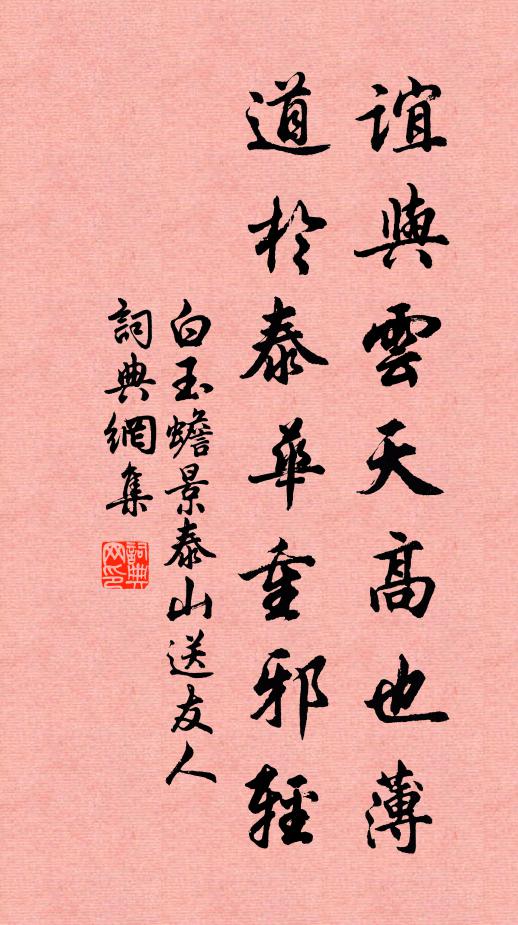 誼與雲天高也薄
道於泰華重邪輕
白玉蟾景泰山送友人
詞典網集
詞典網印